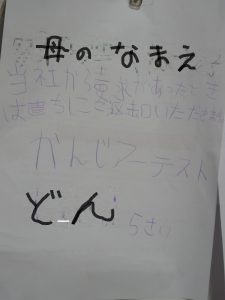 母のなまえ
当社から請求があったとき
は直ちにご返却いただきます
かんじフーテスト
どん
らさい